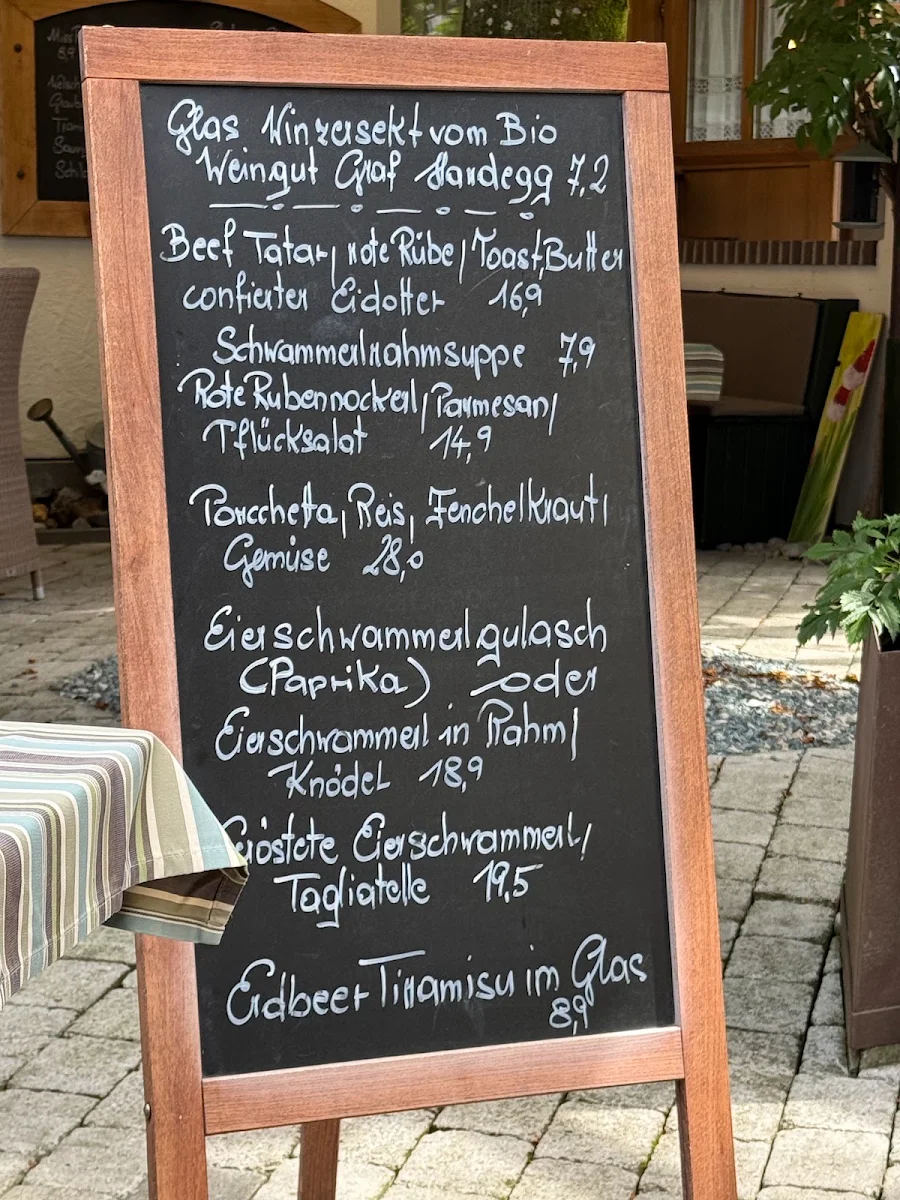 Glas Winzersekt vom Bio
Weingut Graf Hardegg 7,2
Beef Tatar, rote Rübe, Toast, Butter
confierter Eidotter 16,9
Schwammerlrahmsuppe 7,9
Rote Rubennockerl, Parmesan,
Pflücksalat 14,9
Porcchetta, Reis, Fenchelkraut,
Gemüse 28,0
Eierschwammerlgulasch
(Paprika) oder
Eierschwammerl in Rahm,
Knödel 18,9
Geröstete Eierschwammerl,
Tagliatelle 19,5
Erdbeer-Tiramisu im Glas
8,9